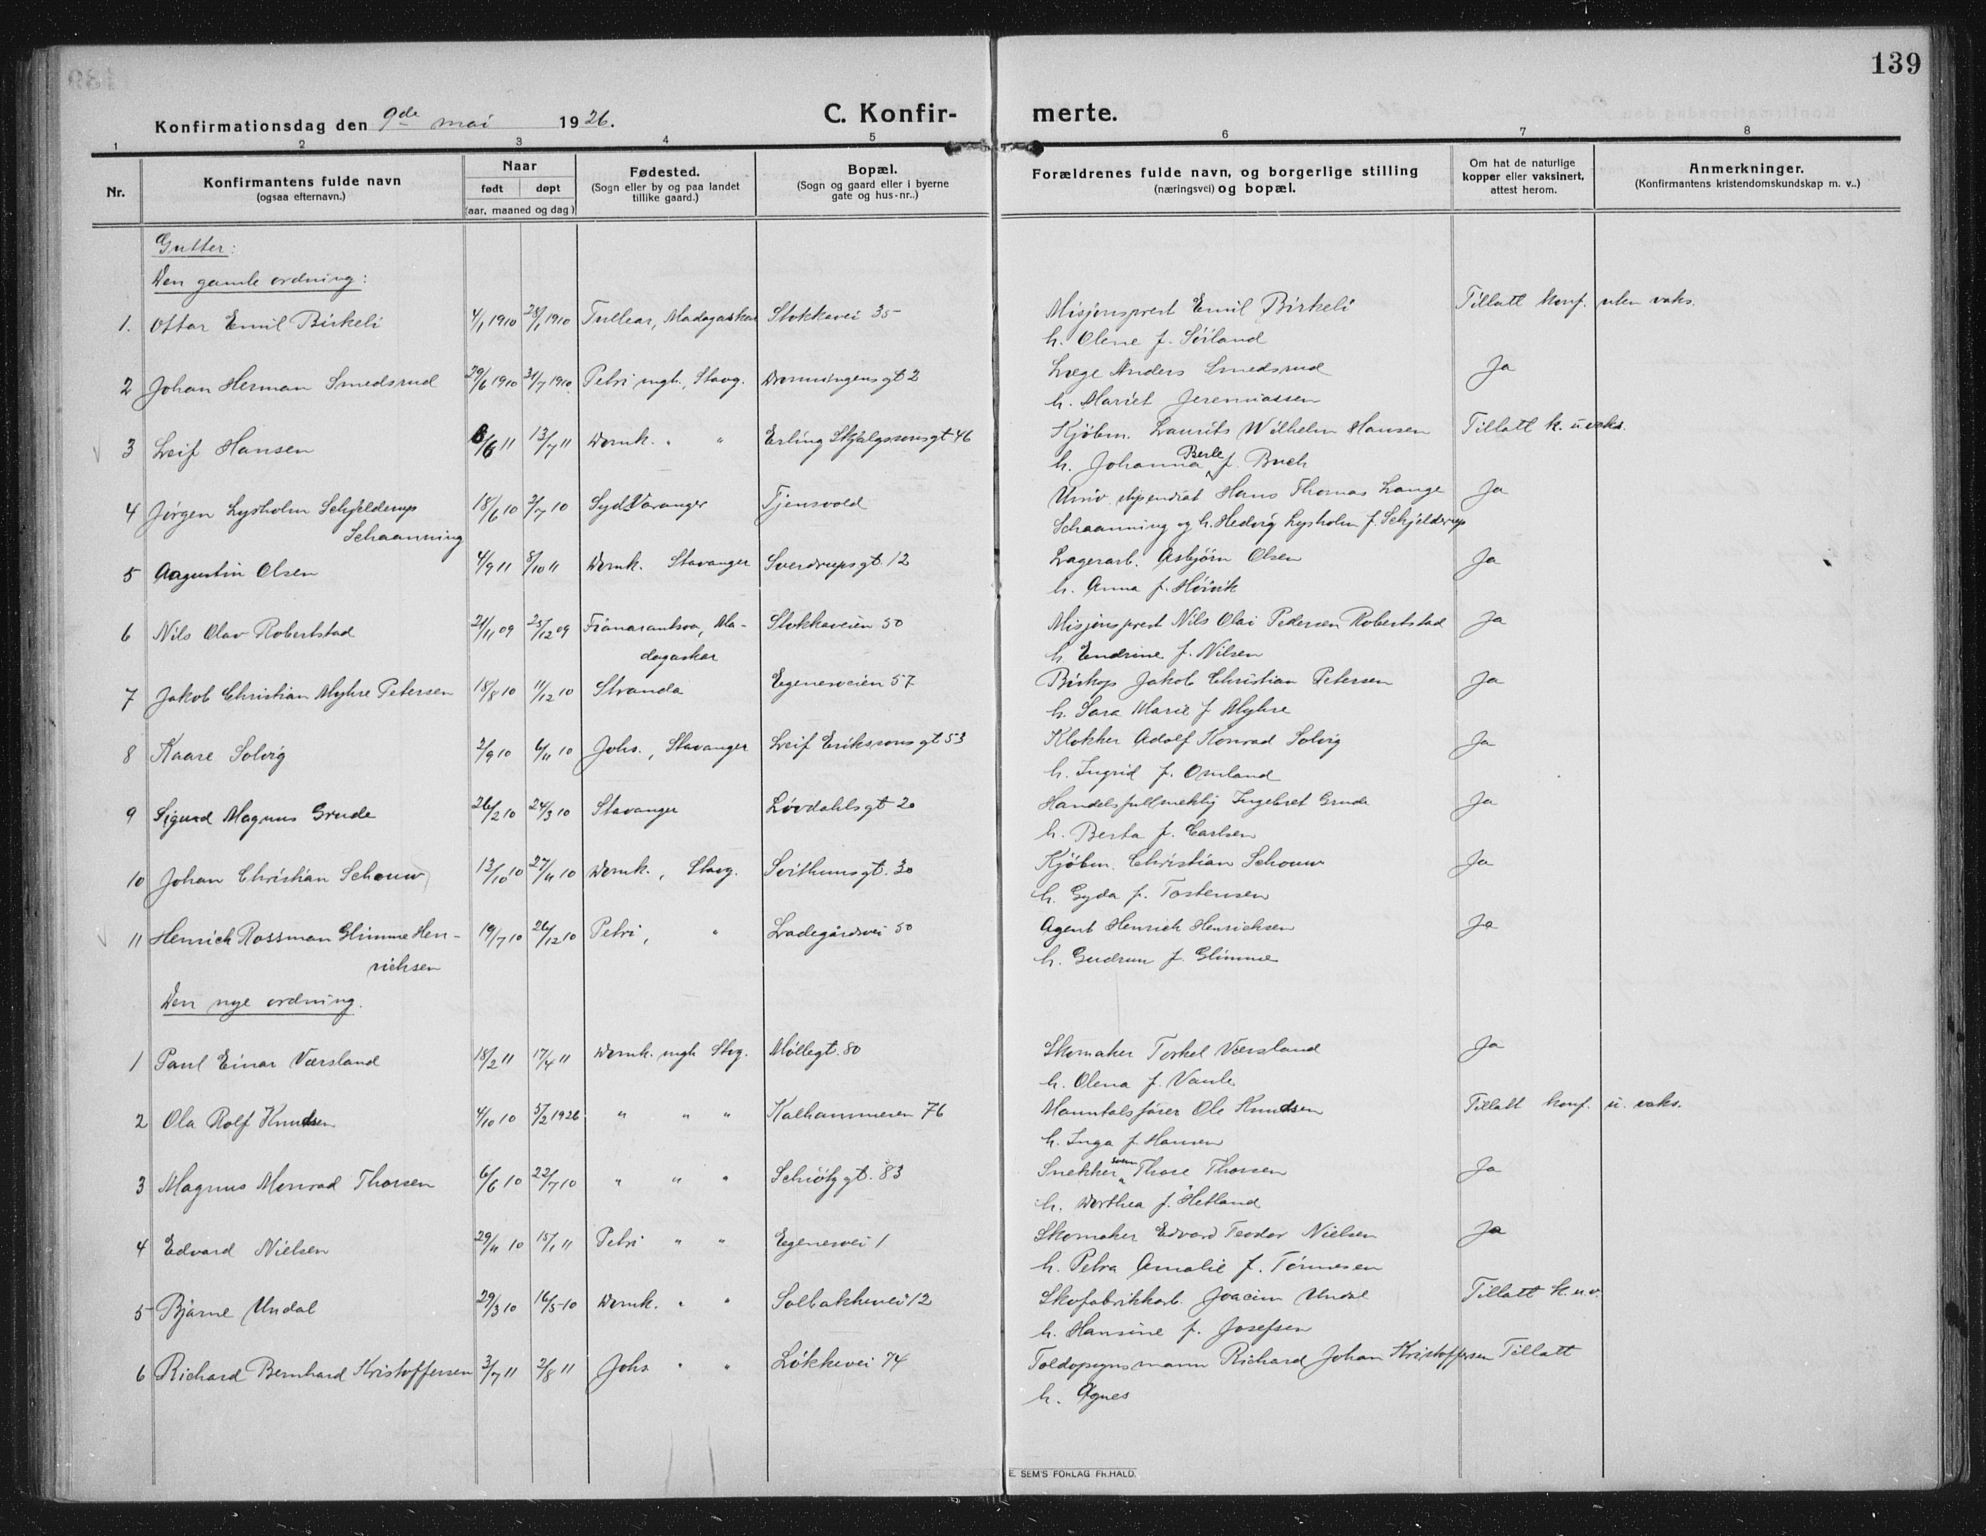 139
Konfirmationsdag den 9de mai 1926.
C. Konfir- merte.
1 2 3 4 5 6 7 8
Nr.
Konfirmantens fulde navn
(ogsaa efternavn.)
Naar
født døpt
(aar, maaned og dag)
Fødested.
(Sogn eller by og paa landet
tillike gaard.)
Bopæl.
(Sogn og gaard eller i byerne
gate og hus-nr..)
Forældrenes fulde navn, og borgerlige stilling
(næringsvei) og bopæl.
Om hat de naturlige
kopper eller vaksinert,
attest herom.
Anmerkninger.
(Konfirmantens kristendomskundskap m. v..)
Gutter:
Den gamle ordning:
1. Ottar Emil Birkeli 4/1 1910 28/1 1910 Tullear, Madagaskar Stokkavei 35 Misjonsprest Emil Birkeli Tillatt konf. uten vaks.
h. Olene f. Sörland
2 Johan Herman Smedsrud 29/6 1910 31/7 1910. Petri mgh., Stavg. Dronningensgt 2 Læge Anders Smedsrud Ja
h. Mariet Jeremiassen
3 Leif Hansen 6/6 11 13/7 11 Domk. " " Erling Skjalgssonsgt 46 Kjøbm. Laurits Wilhelm Hansen Tillatt k. u. vaks.
h. Johanna Berle f. Buch
4 Jørgen Lysholm Schjelderup 18/6 10 3/7 10 Syd Varanger Tjensvold Univ. stipendiat Hans Thomas Lange Ja
Schaanning Schaanning og h. Hedvig Lysholm f. Schjelderup
5 Aagustin Olsen 4/9 11 8/10 11 Domk. Stavanger Sverdrupsgt. 12 Lagerarb. Asbjörn Olsen Ja
h. Anna f. Höivik
6 Nils Olav Robertstad 21/11 09 25/12 09 Fianarantsoa, Ma- Stokkaveien 50 Misjonsprest Nils Olai Pedersen Robertstad Ja
dagaskar h. Endrine f. Nilsen
7 Jakob Christian Myhre Petersen 18/8 10 11/12 10 Stranda Egenesveien 57 Biskop Jakob Christian Petersen Ja
h. Sara Marie f Myhre
8 Kaare Solvig 2/9 10 6/11 10 Johs., Stavanger Leif Erikssonsgt 53 Klokker Adolf Konrad Solvig Ja
h. Ingrid f. Omland
9 Sigurd Magnus Grude 26/2 10 24/3 10 Stavanger Løvdahlsgt 20 Handelsfullmektig Ingebret Grude Ja
h. Berta f. Carlsen
10 Johan Christian Schouw 13/10 10 27/11 10 Domk., Stavg. Svithunsgt. 30 Kjøbm. Christian Schouw Ja
h. Gyda f. Tostensen
11 Henrich Rossman Glimme Hen- 19/7 10 26/12 10 Petri, " Ladegårdsvei 50 Agent Henrich Henrichsen Ja
richsen h. Gudrun f. Glimme
Den nye ordning.
1 Paul Einar Værsland 18/2 11 17/4 11 Domk. mgh Stvg. Møllegt. 80 Skomaker Torkel Værsland Ja
h. Olena f. Vaule
2 Ola Rolf Knudsen 4/10 10 5/2 1926 " " " Kalhammeren 76 Manntalsfører Ole Knudsen Tillatt konf. u. vaks.
h. Inga f. Hansen
3 Magnus Monrad Thorsen 6/6 10 22/7 10 " " " Schiötzgt. 83 Snekker Thore Thorsen Ja
h. Dorthea f. Hetland
4 Edvard Nielsen 29/11 10 15/1 11 Petri " " Egenesvei 1 Skomaker Edvard Teodor Nielsen Ja
h. Petra Amalie f. Tönnesen
5 Bjarne Undal 29/3 10 16/5 10 Domk. " " Solbakkevei 12 Skofabrikkarb. Joacim Undal Tillatt k. u. v.
h. Hansine f. Josefsen
6 Richard Bernhard Kristoffersen 3/7 11 2/8 11 Johs " " Løkkevei 74 Toldopsynsmann Richard Johan Kristoffersen Tillatt
h. Agnes
E. SEM'S FORLAG FR.HALD.